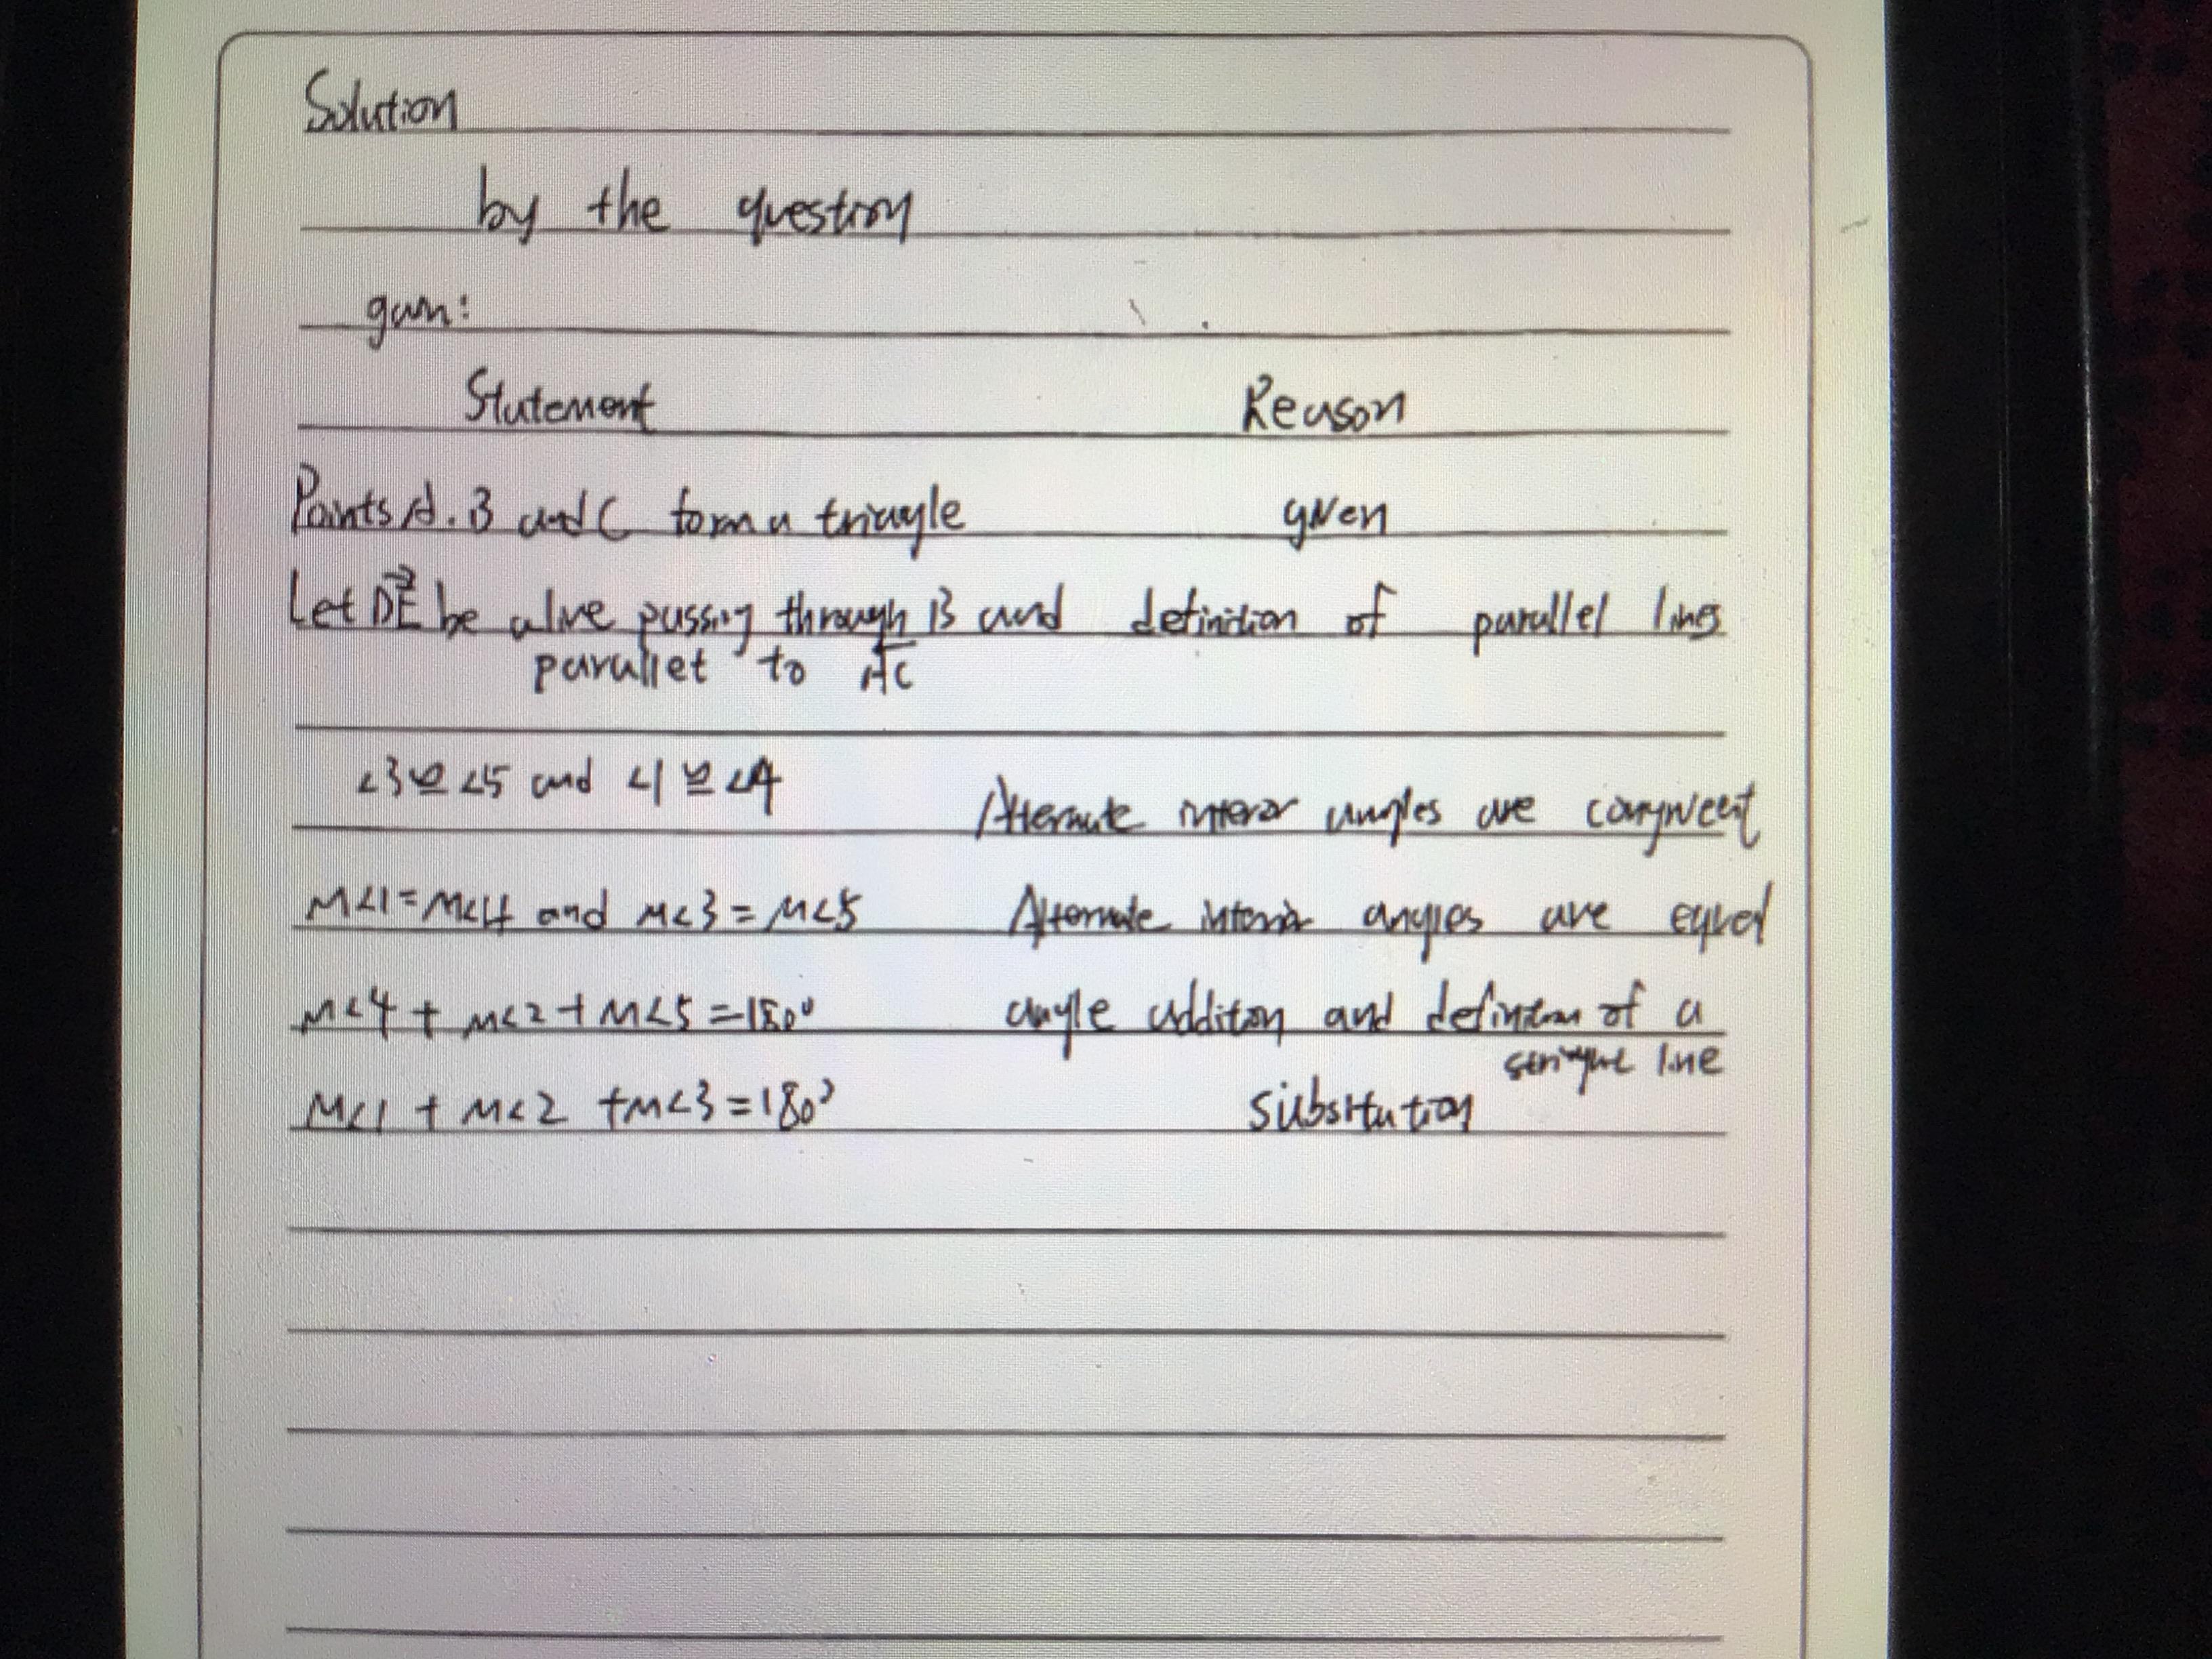 Solution
by the question
given:
Statement Reason
Points A. B and C form a triangle given
Let DE be a line passing through B and definition of parallel lines
parallel to AC
<3≅<5 and <1≅<4 Alternate interior angles are congruent
m<1=m<4 and m<3=m<5 Alternate interior angles are equal
m<4 + m<2+m<5=180° angle addition and definition of a
straight line
m<1 + m<2 +m<3=180° Substitution